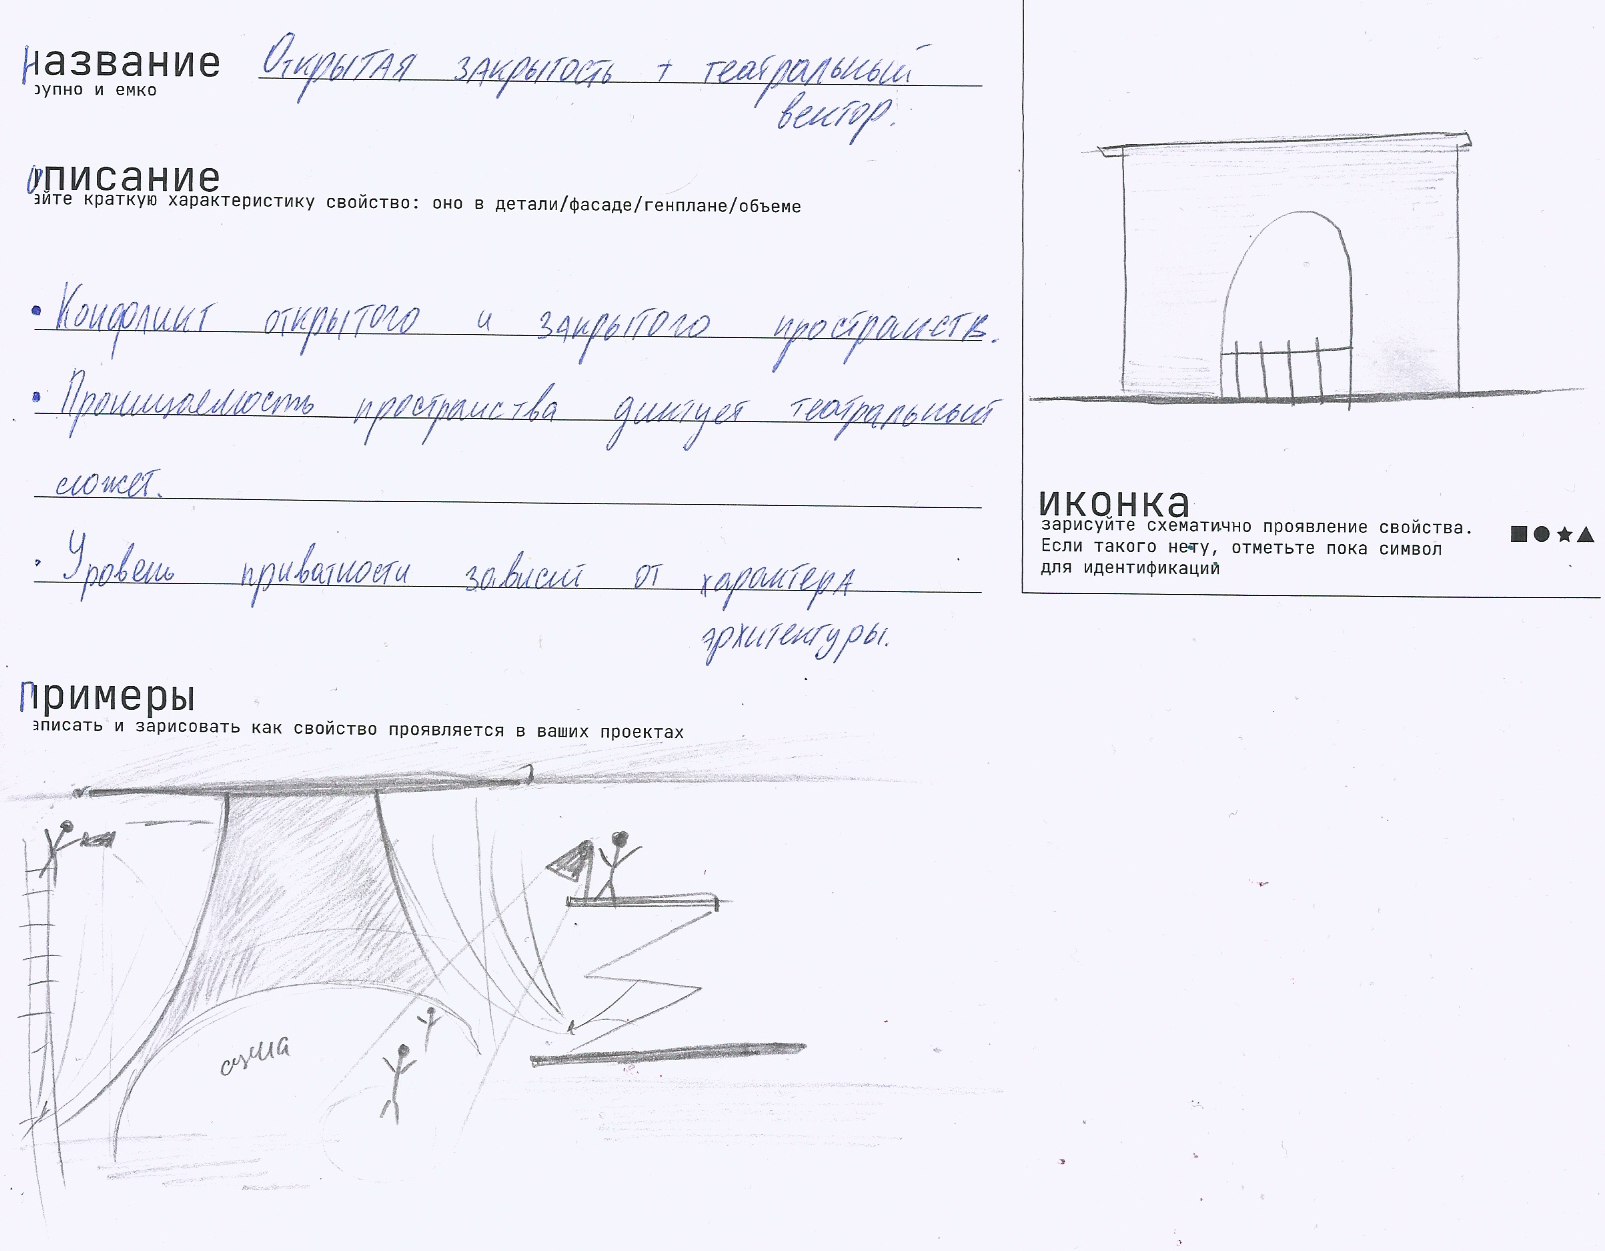 название Открытая закрытость + театральный
рупно и емко
вектор.
описание
айте краткую характеристику свойство: оно в детали/фасаде/генплане/объеме
• Конфликт открытого и закрытого пространств.
• Проницаемость пространства диктует театральный
сюжет.
• Уровень приватности зависит от характера
архитектуры.
примеры
аписать и зарисовать как свойство проявляется в ваших проектах
сцена
иконка
зарисуйте схематично проявление свойства.
Если такого нету, отметьте пока символ
для идентификаций